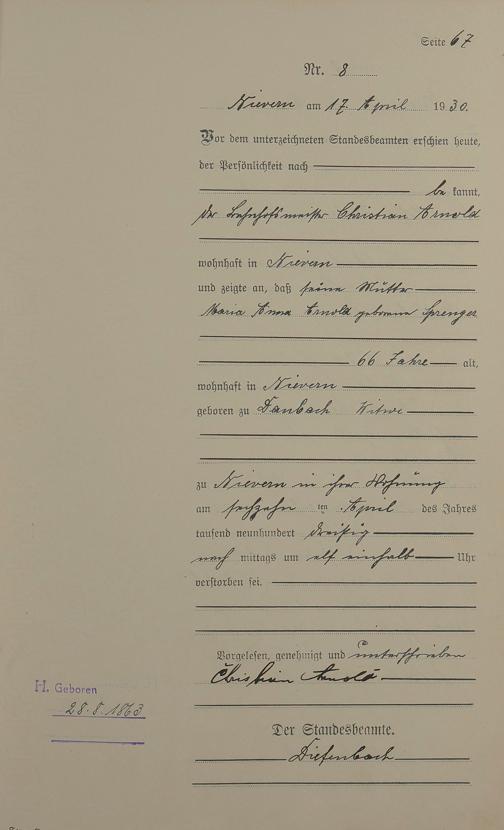 Seite 67
Nr. 8
Nievern am 17. April 1930.
Vor dem unterzeichneten Standesbeamten erschien heute,
der Persönlichkeit nach
be kannt,
der Bahnhofsmeister Christian Arnold
wohnhaft in Nievern
und zeigte an, daß seine Mutter
Maria Anna Arnold geborene Sprenger
66 Jahre alt,
wohnhaft in Nievern
geboren zu Dausenau Witwe
zu Nievern in ihrer Wohnung
am sechzehn ten April des Jahres
tausend neunhundert dreißig
nach mittags um elf einhalb Uhr
verstorben sei.
Vorgelesen, genehmigt und unterschrieben
Christian Arnold
H. Geboren
28.8.1863
Der Standesbeamte.
Diefenbach